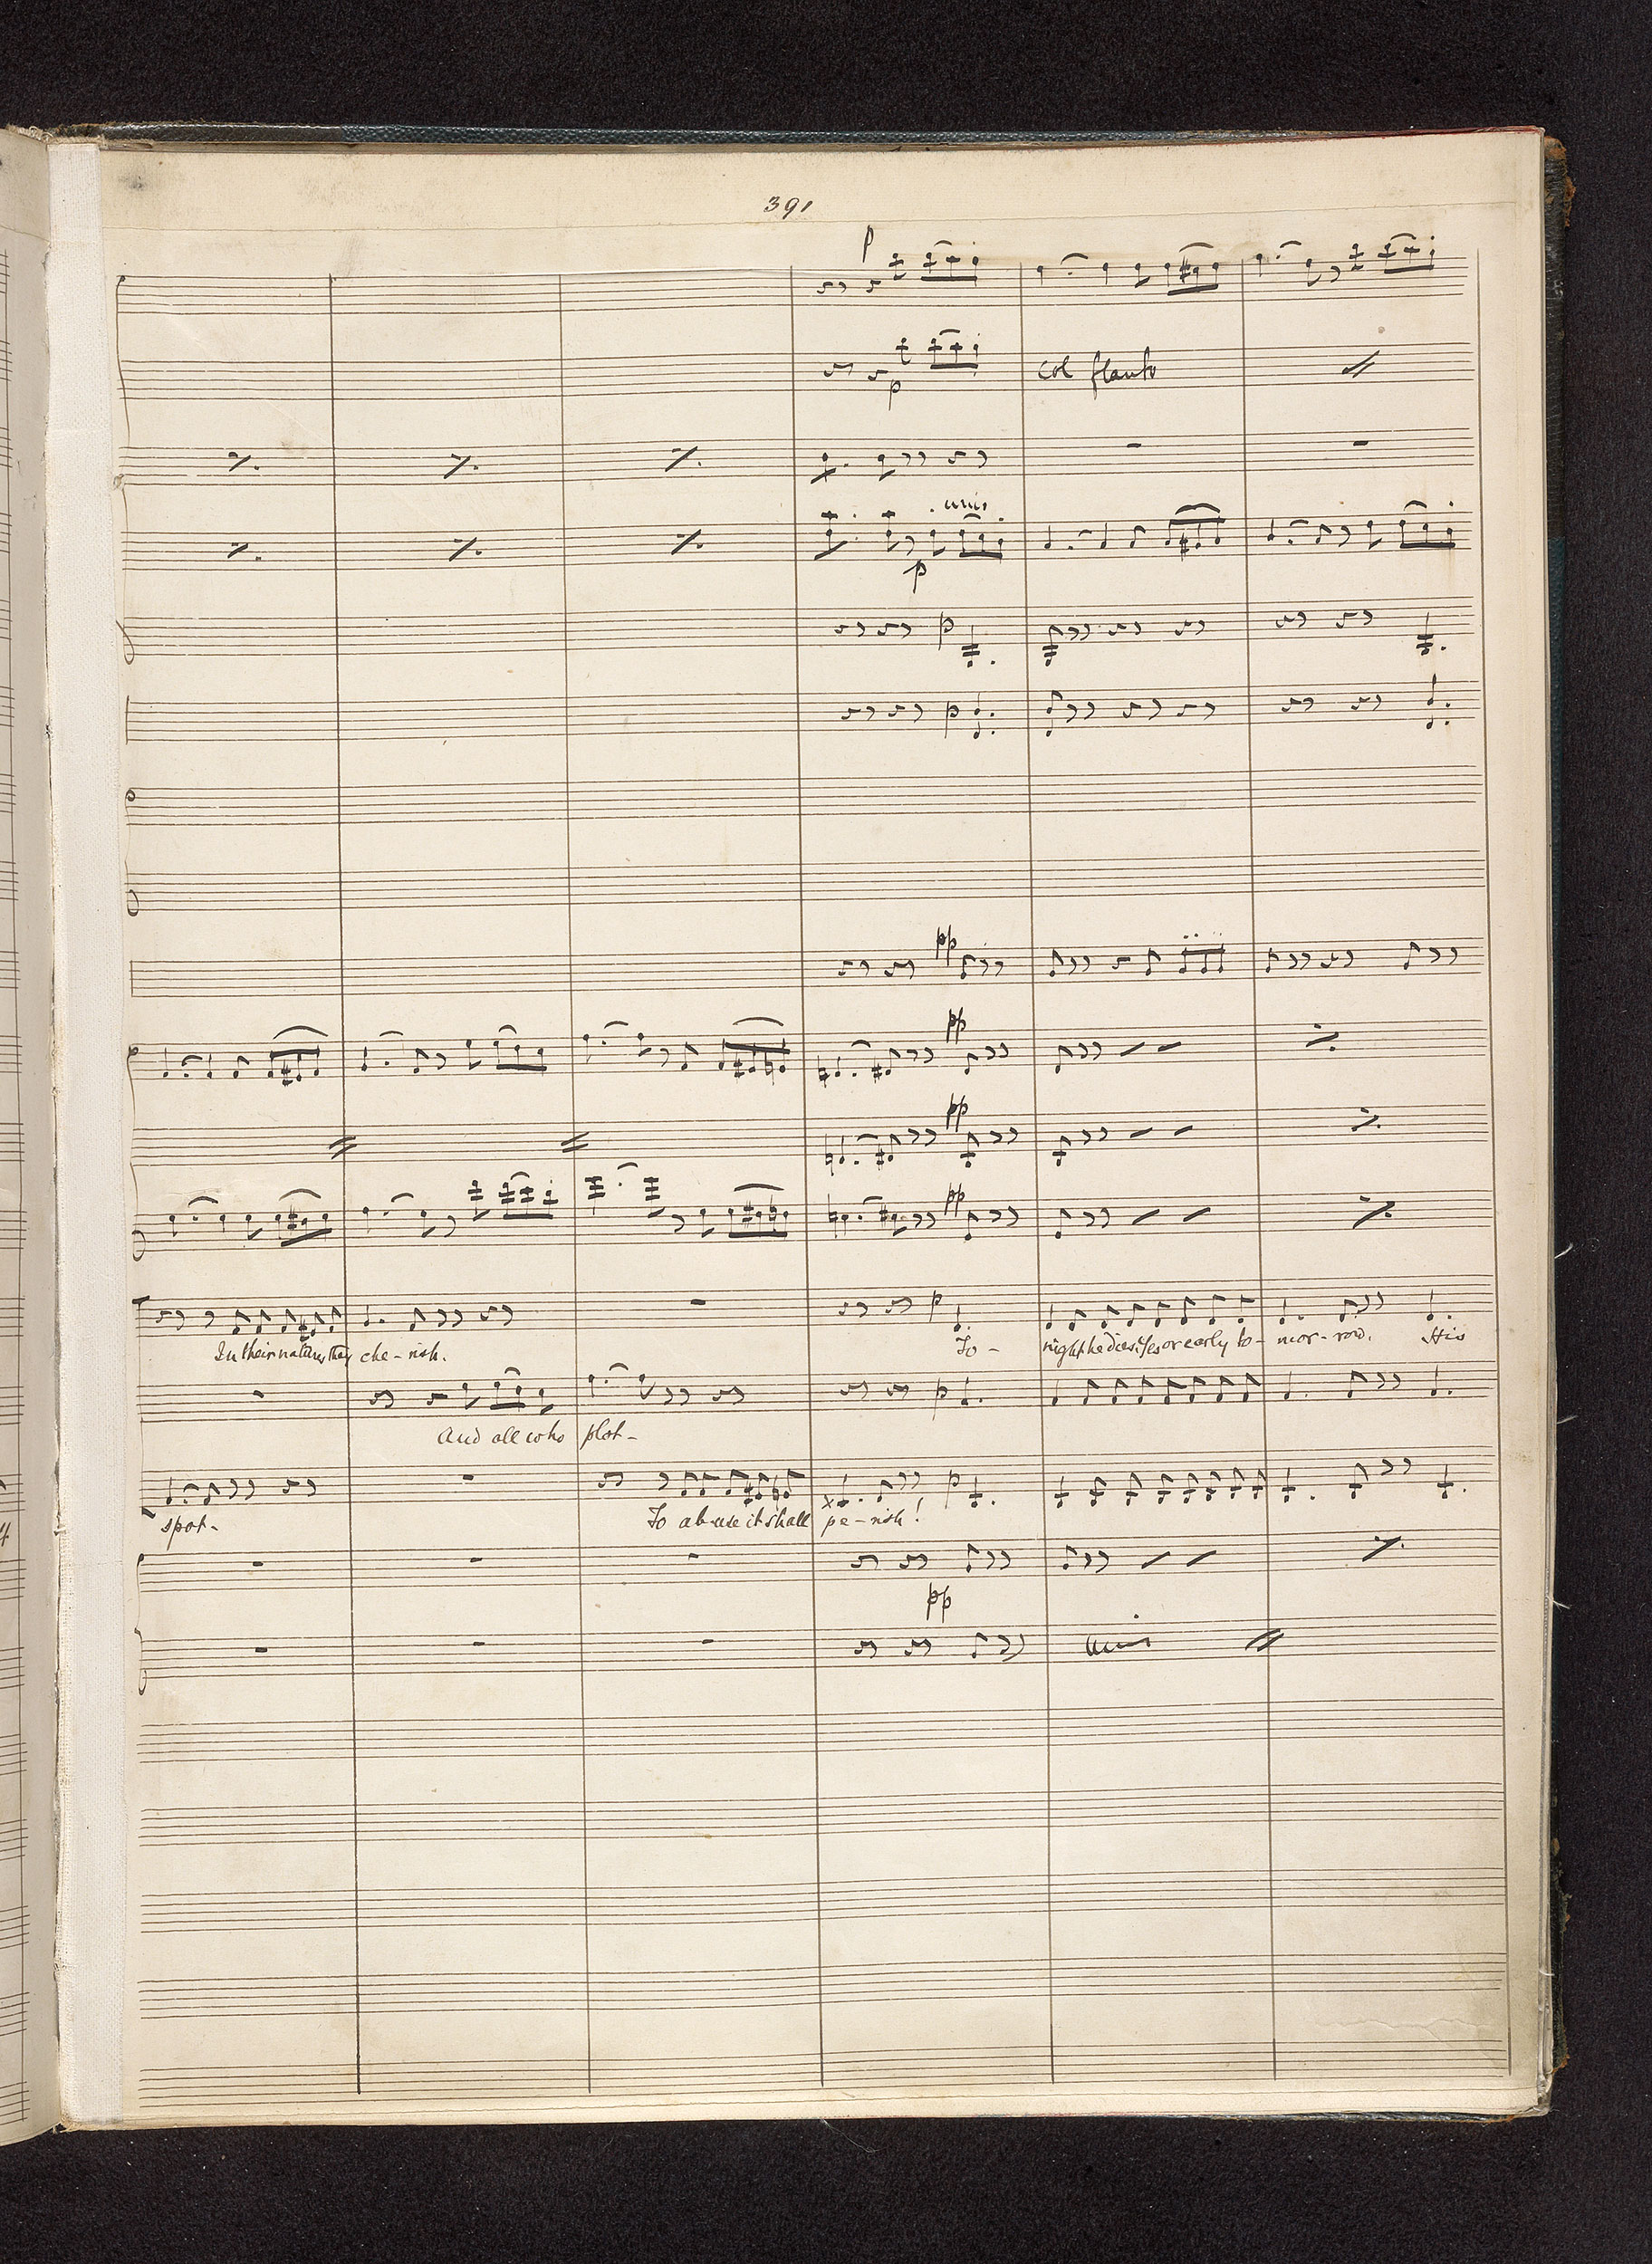 391
p
p
col flauto
unis
p
p
p
pp
pp
pp
pp
p
In their natures they che-rish. To- night he dies! Yes or early to- mor-row. His
p
And all who plot-
p
spot- To abuse it shall pe-rish!
pp
unis